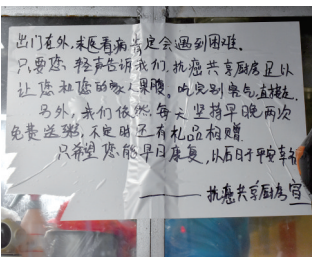 出门在外，求医看病肯定会遇到困难.
只要您轻声告诉我们，抗癌共享厨房足以
让您和您的家人果腹，吃完别客气，直接走.
另外，我们依然，每天坚持早晚两次
免费送粥，不定时还有礼品相赠
只希望您能早日康复，以后日子平安幸福
——抗癌共享厨房宣